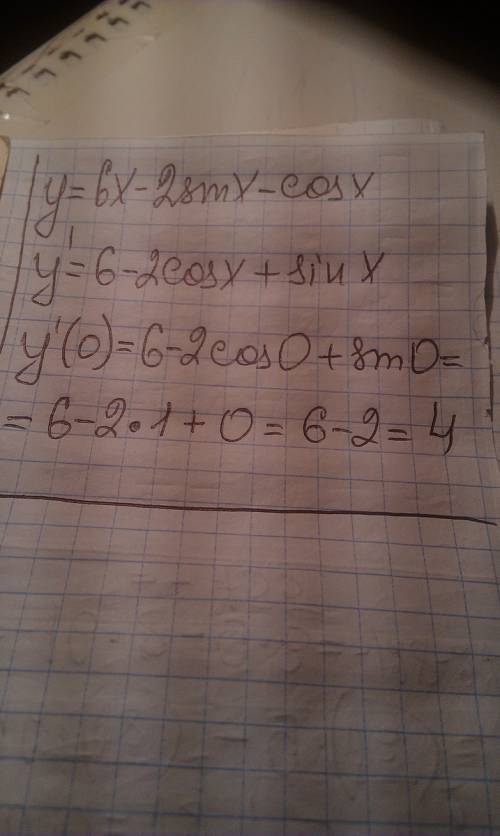 y=6x-2sinx-cosx
y'=6-2cosx+sinx
y'(0)=6-2cos0+sin0=
=6-2•1+0=6-2=4